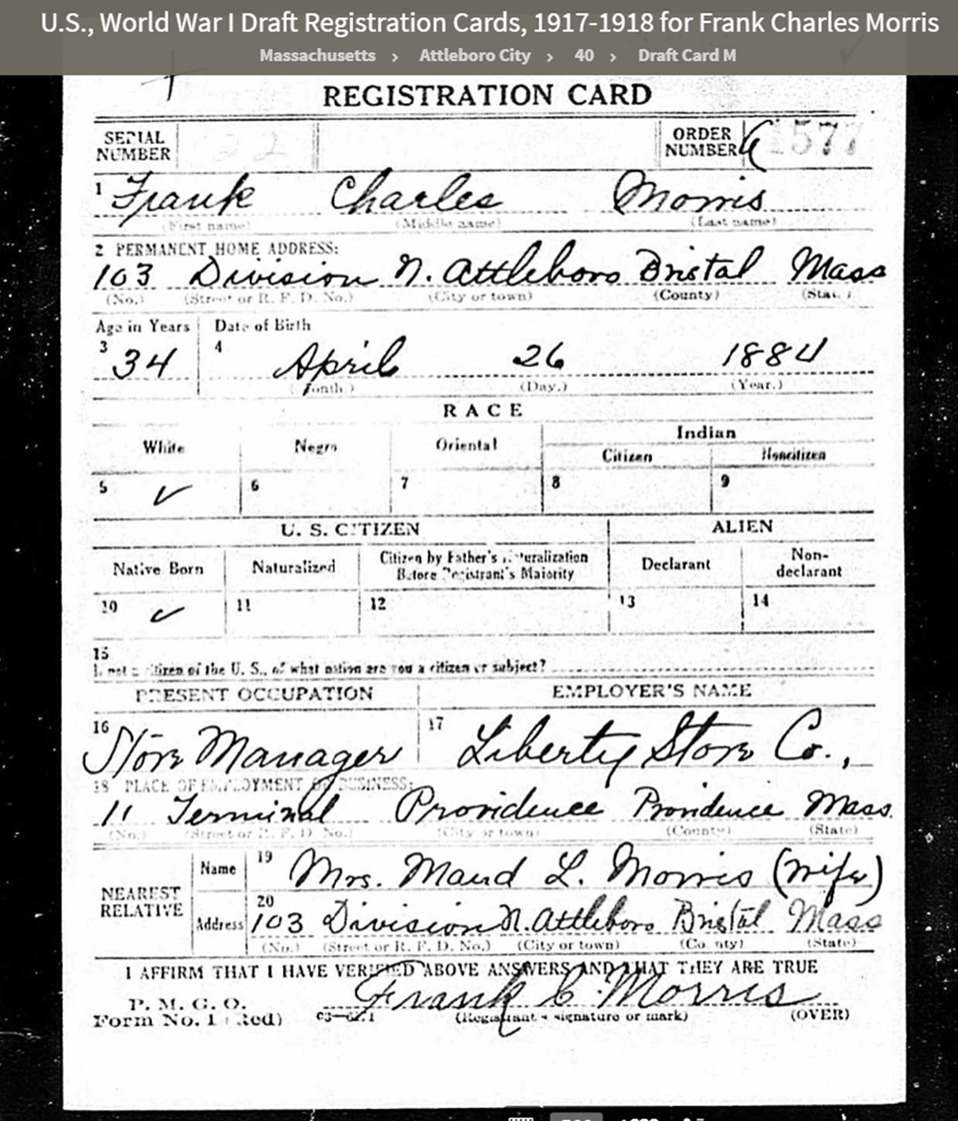 U.S., World War I Draft Registration Cards, 1917-1918 for Frank Charles Morris
Massachusetts > Attleboro City > 40 > Draft Card M
REGISTRATION CARD
SERIAL NUMBER 22 ORDER NUMBER 1577
1 Frank Charles Morris
(First name) (Middle name) (Last name)
2 PERMANENT HOME ADDRESS:
103 Division N. Attleboro Bristol Mass
(No.) (Street or R. F. D. No.) (City or town) (County) (State)
Age in Years Date of Birth
3 34 4 April 26 1884
(Month.) (Day.) (Year.)
RACE
White Negro Oriental Indian
Citizen Noncitizen
5 ✓ 6 7 8 9
U. S. CITIZEN ALIEN
Native Born Naturalized Citizen by Father's Naturalization Before Registrant's Majority Declarant Non-declarant
10 ✓ 11 12 13 14
15
If not a citizen of the U. S., of what nation are you a citizen or subject?
PRESENT OCCUPATION EMPLOYER'S NAME
16 Store Manager 17 Liberty Store Co.,
18 PLACE OF EMPLOYMENT OR BUSINESS:
11 Terminal Providence Providence Mass.
(No.) (Street or R. F. D. No.) (City or town) (County) (State)
NEAREST RELATIVE
Name 19 Mrs. Maud L. Morris (wife)
Address 20 103 Division N. Attleboro Bristol Mass
(No.) (Street or R. F. D. No.) (City or town) (County) (State)
I AFFIRM THAT I HAVE VERIFIED ABOVE ANSWERS AND THAT THEY ARE TRUE
P. M. G. O.
Form No. 1 (Red)
Frank C. Morris
(Registrant's signature or mark) (OVER)